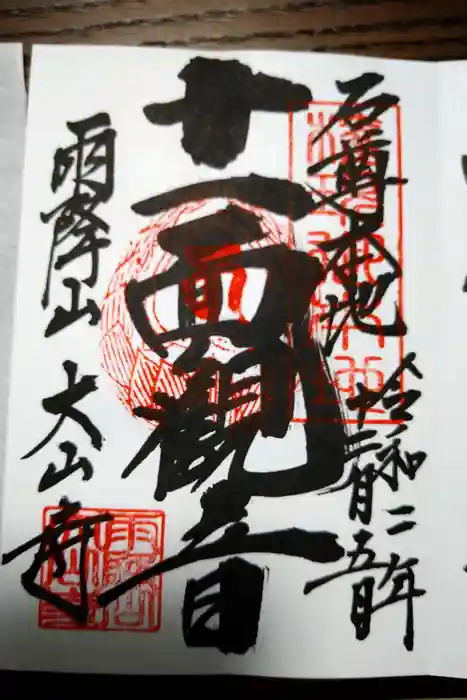 石尊本地
令和二年
十二月五日
十一面觀音
雨降山
大山寺